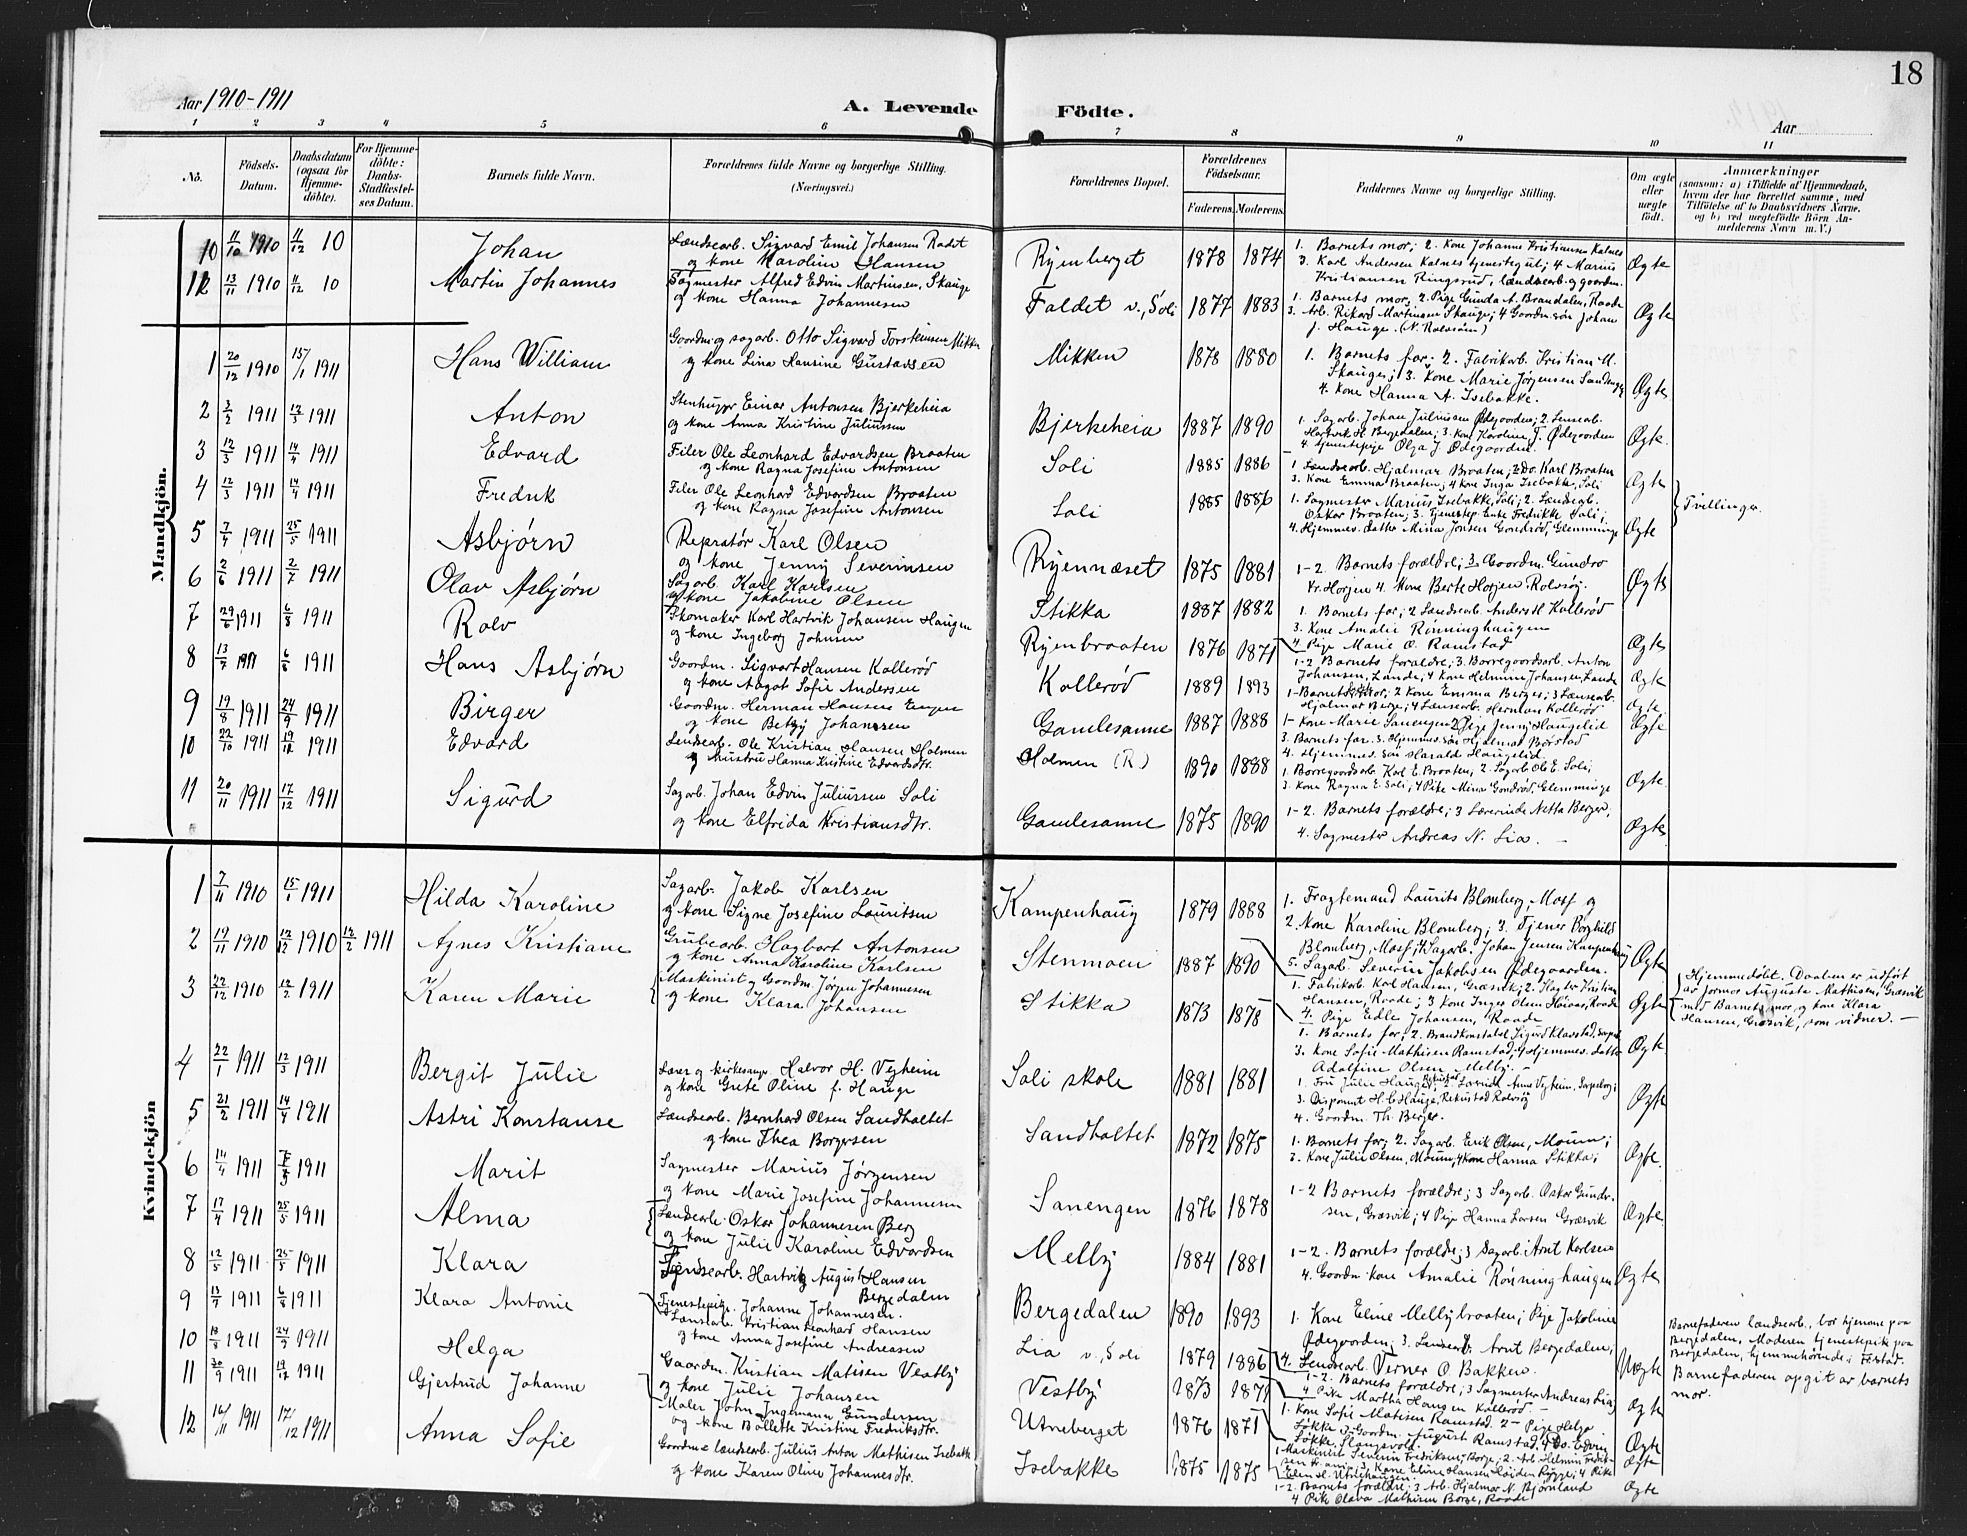 18
Aar 1910-1911
A. Levende Födte.
Aar
1 2 3 4 5 6 7 8 9 10 11
No.
Födsels-Datum.
Daabsdatum (ogsaa for Hjemme-döbte).
For Hjemme-döbte: Daabs-Stadfæstel-ses Datum.
Barnets fulde Navn.
Forældrenes fulde Navne og borgerlige Stilling. (Næringsvei.)
Forældrenes Bopæl.
Forældrenes Födselsaar.
Faderens. Moderens.
Faddernes Navne og borgerlige Stilling.
Om ægte eller uægte födt.
Anmærkninger
(saasom: a) i Tilfælde af Hjemmedaab, hvem der har forrettet samme, med Tilföielse af to Daabsvidners Navne, og b) ved uægtefödte Börn An-melderens Navn m. V.)
Mandkjön.
10 11/10 1910 11/12 10 Johan
Landsearb. Sigvard Emil Johansen Rødt
og kone Karoline Hansen
Ryenberget 1878 1874
1. Barnets mor; 2. Kone Johanne Kristiansen Kalnes
3. Karl Andersen Kalnes tjenestegut; 4 Marius
Kristiansen Ringsrud, landsearb. og goordm.
Ægte
12 13/11 1910 11/12 10 Martin Johannes
Sagmester Alfred Edvin Martinsen, Skauge
og kone Hanna Johannesen
Faldet v., Soli 1877 1883
1. Barnets mor, 2 Pige Gunda A. Brandalen, Raade
3. Arb. Rikard Martinsen Skauge; 4 Goordm. søn Johan
J. Hauge. (N. Rolvsøen)
Ægte
1 20/12 1910 15/1 1911 Hans William
Goordm og sagarb. Otto Sigvard Torsteinsen Mikken
og kone Lina Hansine Gustavsen
Mikken 1878 1880
1. Barnets far; 2. Fabrikarb. Kristian M.
Skauge; 3. Kone Marie Jørgensen Sandenge
4. Kone Hanna A. Isebakke.
Ægte
2 3/2 1911 12/3 1911 Anton
Stenhugger Einar Antonsen Bjerkeheia
og kone Anna Kristine Juliussen
Bjerkeheia 1887 1890
1. Sagarb. Johan Juliussen Ødegaarden; 2. Lensearb.
Hartvik H. Bergedalen; 3. Kone Karoline J. Ødegoorden
4. tjenestepige Olga J. Ødegoorden.
Ægte.
3 12/3 1911 14/4 1911 Edvard
Filer Ole Leonhard Edvardsen Braaten
og kone Ragna Josefine Antonsen
Soli 1885 1886
1 Landsearb. Hjalmar Braaten; 2 Do. Karl Braaten
3. Kone Emma Braaten; 4 kone Inga Isebakke, Soli
Ægte
4 12/3 1911 14/4 1911 Fredrik
Filer Ole Leonhard Edvardsen Braaten
og kone Ragna Josefine Antonsen
Soli 1885 1886
1. Sagmester Marius Isebakke, Soli; 2. Landsearb.
Oskar Braaten; 3. Tjenestep. Ente Fredrikke Soli;
4. Hjemmev. datter Mina Jonsen Gondrød, Glemminge
Ægte
Tvillinger.
5 7/4 1911 25/5 1911 Asbjørn
Repratør Karl Olsen
og kone Jenny Severinsen
Ryennæset 1875 1881
1-2. Barnets forældre; 3. Goordm. Gundro
Kr. Horjen 4. Kone Berte Horjen Rolvsøy.
Ægte
6 2/6 1911 2/7 1911 Olav Asbjørn
Sagarb. Karl Karlsen
og kone Jakobine Olsen
Stikka 1887 1882
1. Barnets far; 2 Landsearb. Anders H Kollerød
3. Kone Amalie Rønninghaugen
4. Pige Marie O. Ramstad
Ægte
7 29/6 1911 6/8 1911 Rolv
Skomaker Karl Hartvik Johansen Haugen
og kone Ingeborg Johnsen
Ryenbraaten 1876 1871
1-2 Barnets forældre; 3. Borregoordsarb. Anton
Johansen, Lande; 4 kone Helmine Johansen, Lande
Ægte
8 13/7 1911 6/8 1911 Hans Asbjørn
Goordm. Sigvart Hansen Kollerød
og kone Aagot Sofie Andersen
Kollerød 1889 1893
1-Barnets mor; 2 Kone Emma Berger; 3 Lænsearb.
Hjalmar Berge; 4 Lænsearb. Herman Kollerød
Ægte
9 19/8 1911 24/9 1911 Birger
Goordm. Herman Hansen Engen
og kone Betzy Johansen
Gamlesanne 1887 1888
1- Kone Marie Sanengen 2 Pige Jenny Haugelid
3. Barnets far. 3. Hjemmev. søn Hjalmar Børstad
4. Hjemmev. søn Harald Haugelid
Ægte
10 22/10 1911 19/12 1911 Edvard
Lendsearb. Ole Kristian Hansen Holmen
og hustru Hanna Kristine Edvardsdtr.
Holmen (R.) 1890 1888
1. Borregoordsarb. Karl E. Braaten, 2. Sagarb Ole E. Soli,
3. Kone Ragna E. Soli; 4 Pike Mina Gondrød, Glemminge
Ægte.
11 20/11 1911 17/12 1911 Sigurd
Sagarb. Johan Edvin Juliussen Soli
og kone Elfrida Kristiansdtr.
Gamlesanne 1875 1890
1-2. Barnets forældre; 3 Lærerinde Netta Berger;
4. Sagmester Andreas N. Lia.
Ægte
Kvindekjön
1 7/11 1910 15/1 1911 Hilda Karoline
Sagarb. Jakob Karlsen
og kone Signe Josefine Lauritsen
Kampenhaug 1879 1888
1. Fragtemand Laurits Blomberg, Moss og
2. Kone Karoline Blomberg; 3. Tjener Borghild
Blomberg, Moss; 4. Sagarb. Johan Jensen Kampenhaug
5. Sagarb. Severin Jakobsen Ødegaarden.
Ægte
2 19/11 1910 12/12 1910 12/2 1911 Agnes Kristiane
Grubearb. Hagbart Antonsen
og kone Anna Karoline Karlsen
Stenmoen 1887 1890
1. Fabrikarb. Karl Hansen, Græsvik; 2. Kristian
Hansen, Raade; 3 kone Inger Olsen Raade
4. Pige Edle Johansen, Raade
Ægte
Hjemmedøbt. Daaben er udført
av jormor Augusta Mathisen, Græsvik
med Barnets mor og kone Klara
Hansen, Græsvik, som vidner. —
3 22/12 1910 12/2 1911 Karen Marie
Maskinist og Goordm. Jørgen Johannesen
og kone Klara Johansen
Stikka 1873 1878
1. Barnets far; 2. Brandkonstabel Sigurd Klavestad,
3. Kone Sofie Mathisen Ramstad; 4 Hjemmev. datter
Adolfine Olsen Melby. —
Ægte
4 22/1 1911 12/3 1911 Bergit Julie
Lærer og kirkesanger Halvor H. Vegheim
og kone Grete Oline f. Hauge
Soli skole 1881 1881
1. Fru Julie Hauge, 2 Lærerinde Anne Vegheim, Sarpsborg;
3. Disponent H. C. Hauge, Rekustad Rolvsøy
4. Goordm. Th. Berger.
Ægte
5 21/2 1911 14/4 1911 Astri Konstanse
Landsearb. Bernhard Olsen Sandholtet
og kone Thea Borgersen
Sandholtet 1872 1875
1. Barnets far; 2. Sagarb. Erik Olsen, Moum;
3. Kone Julie Olsen, Moum; 4 kone Hanna Stikka;
Ægte.
6 14/4 1911 1911 Marit
Sagmester Marius Jørgensen
og kone Marie Josefine Johannesen
Sanengen 1876 1878
1-2 Barnets forældre; 3 Sagarb. Oskar Gunder-
sen, Græsvik; 4 Pige Hanna Larsen Græsvik
Ægte.
7 17/4 1911 25/5 1911 Alma
Landsearb. Oskar Johannesen Berg
og kone Julie Karoline Edvardsen
Melby 1884 1881
1-2. Barnets forældre; 3 Sagarb. Arnt Karlsen
4. Goordm. kone Amalie Rønninghaugen
Ægte
8 12/5 1911 25/5 1911 Klara
Lendsearb. Hartvig August Hansen
Bergedalen
Tjenestepige. Johanne Johannesen.
Bergedalen 1890 1893
1. Kone Eline Mellybraaten; Pige Jakobine
Ødegoorden; 3. Lensearb. Arnt Bergedalen;
4. Lendsearb. Verner O. Bakken.
Uægte
Barnefaderen landsearb., bor hjemme paa
Bergedalen, Moderen tjenestepike paa
Bergedalen, hjemmehørende i
Barnefaderen opgit av barnets
mor.
9 13/7 1911 6/8 1911 Klara Antonie
Lænsearb. Kristian Leonhard Hansen
og kone Anna Josefine Andreasen
Lia v., Soli 1879 1886
1-2. Barnets forældre; 3 Sagmester Andreas Lia;
4 Pike Martha Haugen Kollerød. —
Ægte
10 1911 24/9 1911 Helga
Gaardm. Kristian Matisen Vestby
og kone Julie Johansen
Vestby 1873 1871
1. Kone Sofie Matisen Ramstad. 2 — Pige Helga
Løkke 3 Gordm. August Ramstad. 4 Do. Edvin
Løkke, Slangsvold.
Ægte
11 20/9 1911 19/12 1911 Gjertrud Johanne
Maler John Ingemann Gundersen
og kone Bollette Kristine Fredriksdtr.
Utneberget 1876 1871
1 Maskinist Severin Fredriksen, Borge; 2. Arb. Helmin Fredrik-
sen 3. Kone Eline Hansen Heiden Rygge; 4 Pike
Elen H. Utnehaugen.
Ægte
12 16/11 1911 17/12 1911 Anna Sofie
Goordm & landsearb. Julius Anton Mathisen Isebakke
og kone Karen Oline Johannesdtr.
Isebakke 1875 1875
1-2. Barnets forældre; 3 Arb. Hjalmar N. Bjørnland
4 Pike Olava Mathisen Borge, Raade
Ægte